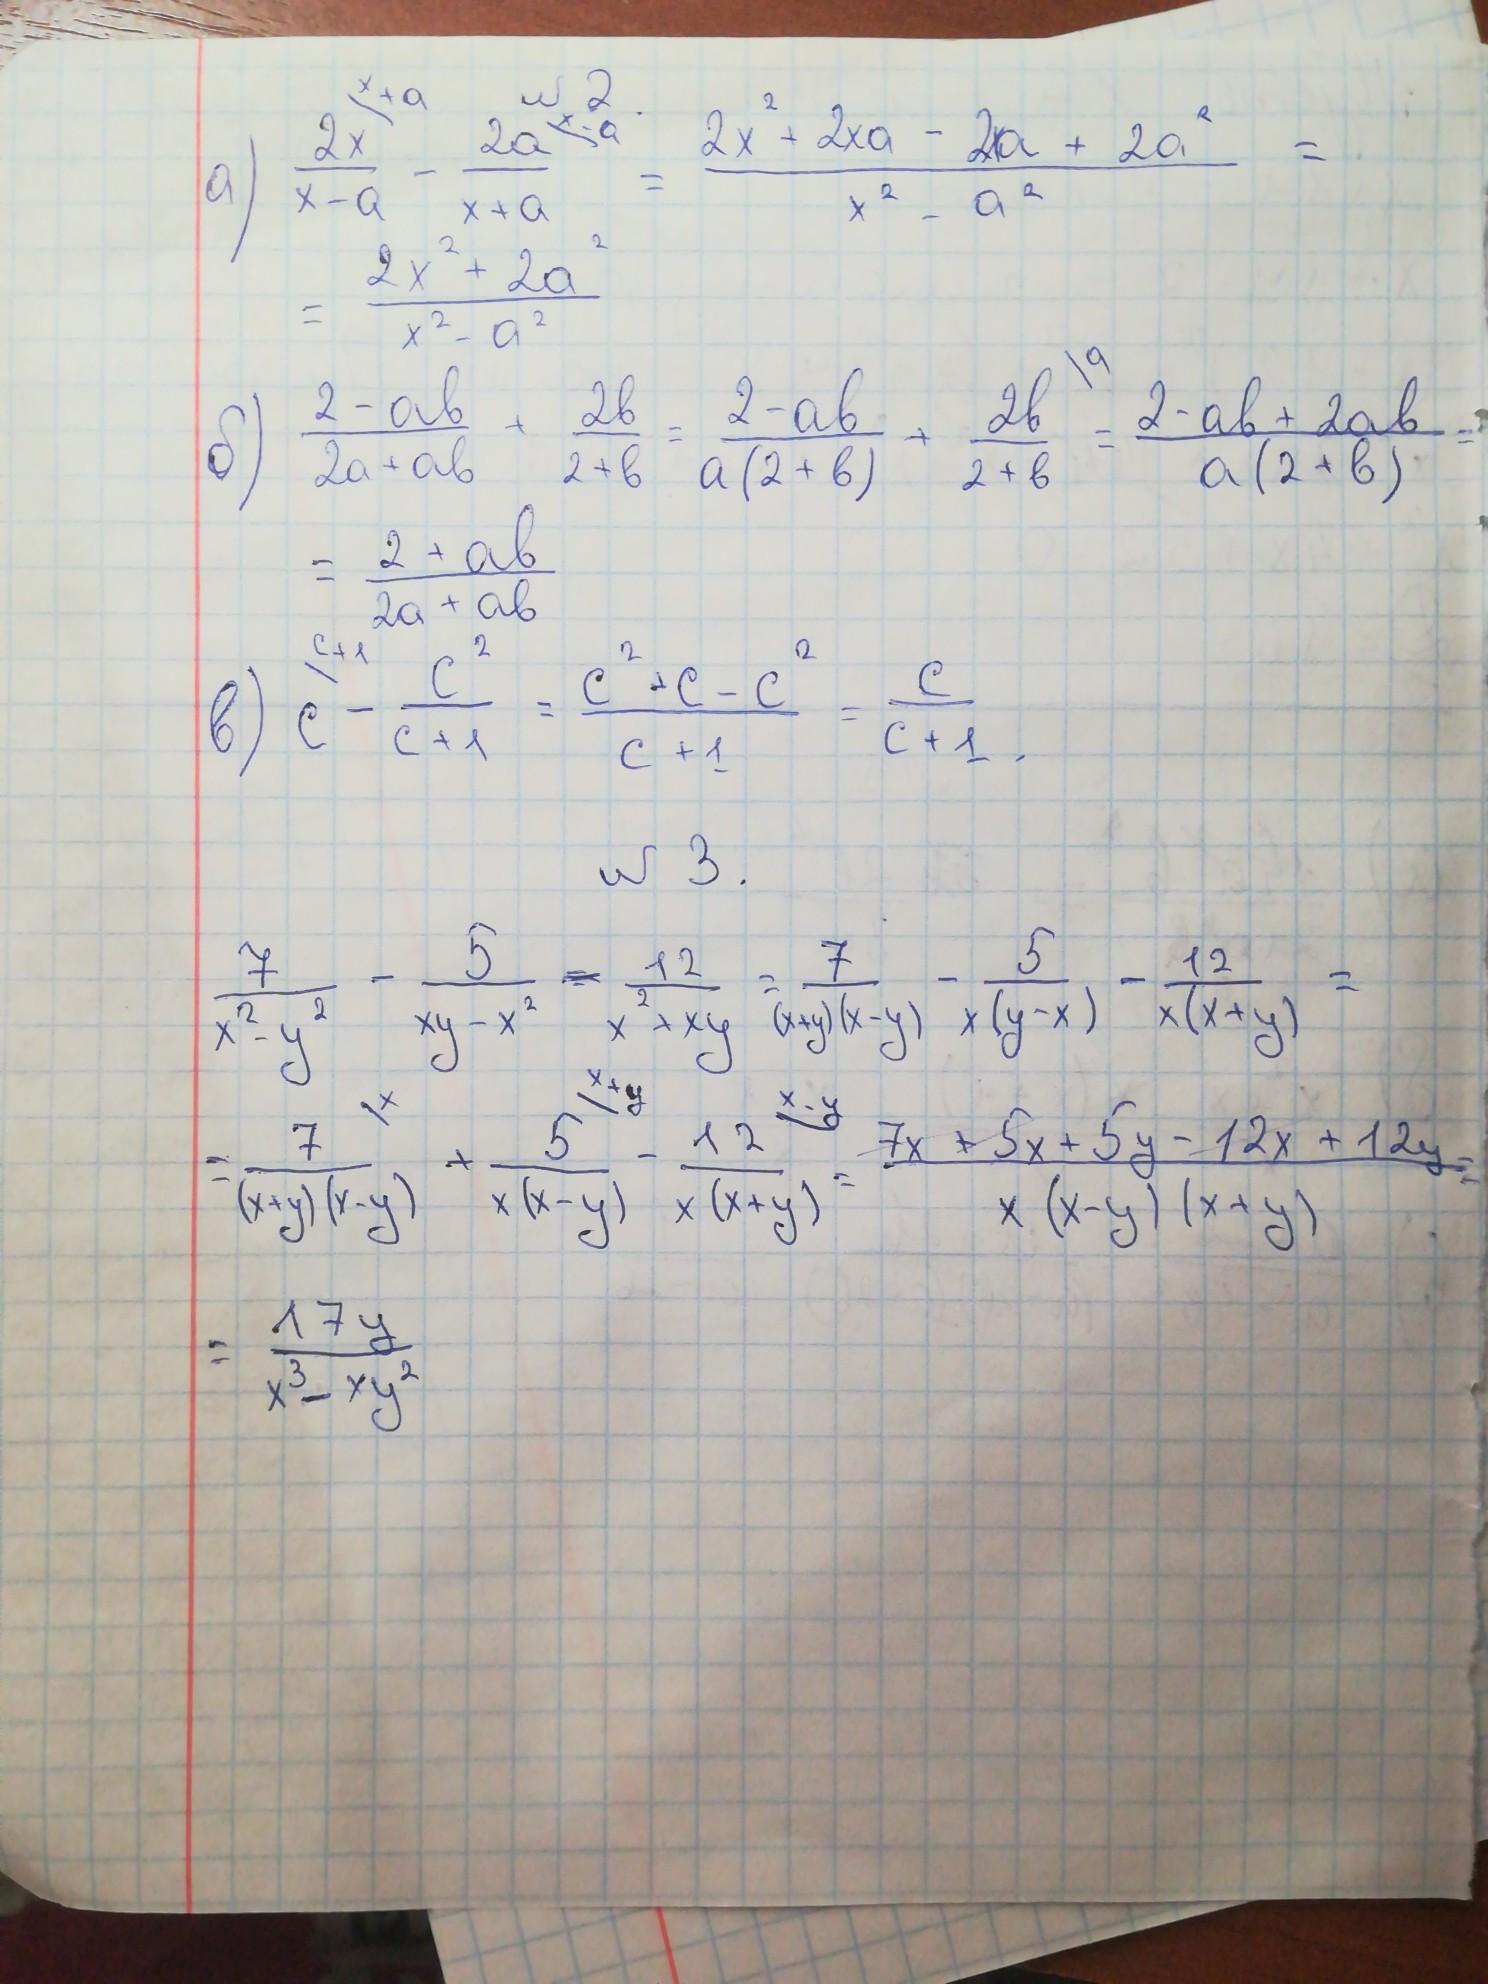 № 2.
а) \frac{2x}{x-a}^{\x+a} - \frac{2a}{x+a}^{\x-a} = \frac{2x^2+2xa-2xa+2a^2}{x^2-a^2} =
= \frac{2x^2+2a^2}{x^2-a^2}
б) \frac{2-ab}{2a+ab} + \frac{2b}{2+b} = \frac{2-ab}{a(2+b)} + \frac{2b}{2+b}^{\a} = \frac{2-ab+2ab}{a(2+b)} =
= \frac{2+ab}{2a+ab}
в) c^{\c+1} - \frac{c^2}{c+1} = \frac{c^2+c-c^2}{c+1} = \frac{c}{c+1}.
№ 3.
\frac{7}{x^2-y^2} - \frac{5}{xy-x^2} - \frac{12}{x^2+xy} = \frac{7}{(x+y)(x-y)} - \frac{5}{x(y-x)} - \frac{12}{x(x+y)} =
= \frac{7}{(x+y)(x-y)}^{\x} + \frac{5}{x(x-y)}^{\x+y} - \frac{12}{x(x+y)}^{\x-y} = \frac{7x+5x+5y-12x+12y}{x(x-y)(x+y)} =
= \frac{17y}{x^3-xy^2}